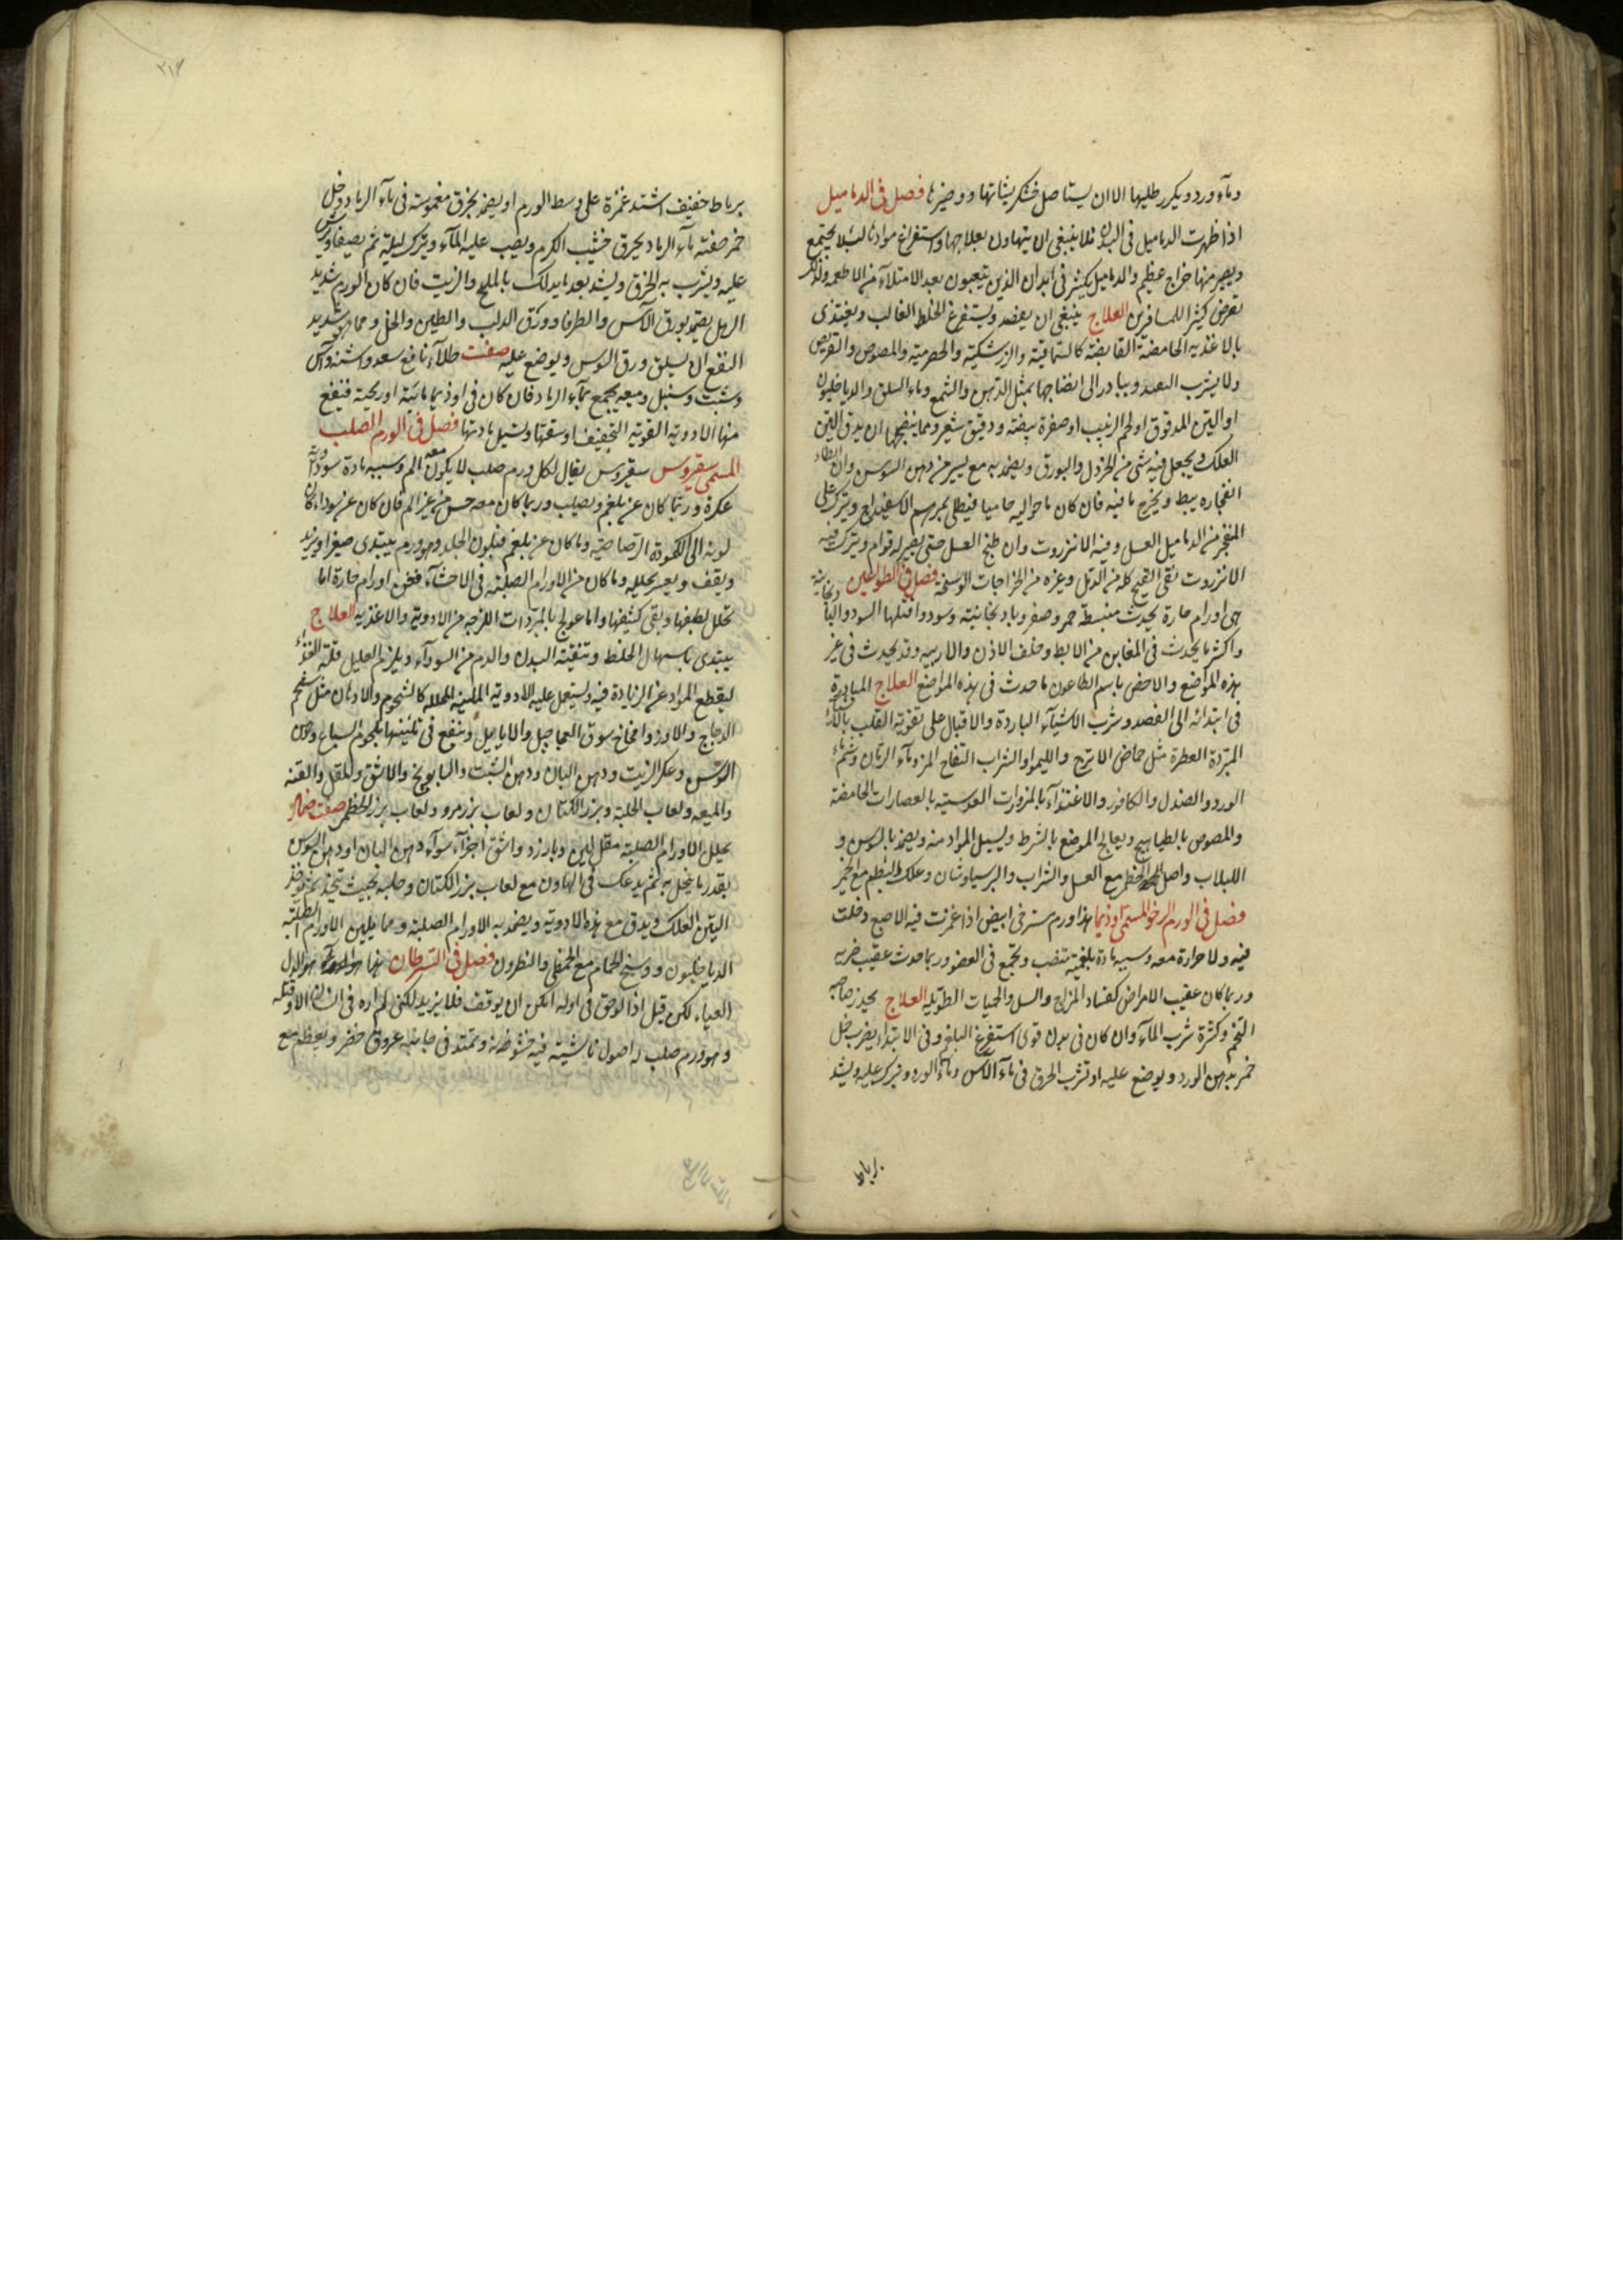 وماء ورد ويكرر طليها الا ان يستاصل خشكريشاتها وو ضيرها فصل فى الدماميل
اذا ظهرت الدماميل فى البدن فلا ينبغى ان يتهاون بعلاجها واستفراغ موادها لئلا يجتمع
ويصير منها خراج عظيم والدماميل يكثر فى ابدان الذين يتعبون بعد الامتلاء من الاطعمه ولذلك
تعرض كثيرا للمسافرين العلاج ينبغى ان يفصد ويستفرغ الخلط الغالب ويغتذى
بالاغذيه الحامضة القابضة كالسماقية والزرشكية والحصرمية والمصوص والقريص
ولا يشرب البعيد ويبادر الى انضاجها بمثل الدهن والشمع وماء السلق والدياخليون
او التين المدقوق او لحم الزبيب او صفرة بيضة ودقيق شعير ومما ينضجها ان يدق التين
العلك ويجعل فيه شئ من الخردل والبورق ويضمد به مع يسير من دهن السوسن وان ابطاء
انفجاره يبط ويخرج ما فيه فان كان ما حواليه حاميا فيطلى بمرهم الاسفيداج ويترك على
المنفجر من الدماميل العسل وفيه الانزروت وان طبخ العسل حتى يصير له قوام ويترك فيه
الانزروت نقى القيح كله من الدمل وغيره من الخراجات الوسخة فصل فى الطواعين
هى اورام حارة يحدث منبسطة حمر وصفر وبادنجانية وسود واقتلها السود والبادنجانية
واكثر ما يحدث فى المغابن من الابط وخلف الاذن والاربيه وقد يحدث فى غير
هذه المواضع والاخص باسم الطاعون ما حدث فى هذه المواضع العلاج المبادرة
فى ابتدائه الى الفصد وشرب الاشياء الباردة والاقبال على تقوية القلب بالاشياء
المبردة العطرة مثل حماض الاترج والليموا والشراب التفاح المز وماء الرمان وشم ماء
الورد والصندل والكافور والاغتذاء بالمزورات العدسية بالعصارات الحامضة
والمصوص بالطياهيج ويعالج الموضع بالشرط ويسيل المواد منه ويضمد بالسوسن و
اللبلاب واصل الخطمى مع العسل والشراب والبرسياوشان وعلك البطم مع الخمر
فصل فى الورم الرخو المسمى اوذيما هذا ورم مسترخى ابيض اذا غمزت فيه الاصبع دخلت
فيه ولا حرارة معه وسببه مادة بلغمية تنصب وتجتمع فى العضو وربما حدث عقيب ضربه
وربما كان عقيب الامراض كفساد المزاج والسل والحميات الطويله العلاج يحذر صاحبه
التخم وكثرة شرب الماء وان كان فى بدن قوى استفرغ البلغم وفى الابتداء يضرب خل
خمر بدهن الورد ويوضع عليه او تشرب الخرق فى ماء الاس وماء الورد ويترك عليه ويشد
برباط
برباط خفيف اشتد غمزه على وسط الورم او يضمد بخرق مغموسة فى ماء الرماد وخل
خمر صفته ماء الرماد يحرق خشب الكرم ويصب عليه الماء ويترك ليلة ثم يصفا ويرش
عليه ويشرب به الخرق ويشد بعد ما يدلك بالملح والزيت فان كان الورم شديد
الرهل يضمد بورق الآس والطرفا وورق الدلب والطين والخل ومما هو شديد
النفع ان يسلق ورق السوس ويوضع عليه صفت طلاء نافع سعد واشنه واس
وشبت وسنبل وميعه يجمع بماء الرماد فان كان فى اوذيما مائية او ريحية فينفع
منها الادوية القوية التجفيف او سقها وتسيل مادتها فصل فى الورم الصلب
المسمى سقيروس سقيروس يقال لكل ورم صلب لا يكون معه الم وسببه مادة سوداوية
عكرة وربما كان عن بلغم وتصلب وربما كان معه حس من غير الم فان كان عن سوداء كان
لونه الى الكمودة الرصاصية وما كان عن بلغم فبلون الجلد وهو ورم يبتدى صغيرا ويزيد
ويقف ويعسر تحليله وما كان من الاورام الصلبة فى الاحشاء فعن اورام حارة اما
تحلل لطيفها وبقى كثيفها واما عولج بالمبردات اللزجه من الادوية والاغذيه العلاج
يبتدى باسهال الخلط وتنقية البدن والدم من السوداء ويلزم العليل قلة الغذاء
ليقطع المواد عن الزيادة فيه وتستعمل عليه الادوية الملينة المحلله كالشحوم والادهان مثل شحم
الدجاج والاوز وامخاخ سوق العجاجيل والايايل وينفع فى تليينها لحوم السباع ودهن
السوسن وعكر الزيت ودهن البان ودهن الشبت والبابونج والاشق والمقل والقنه
والميعه ولعاب الحلبة وبزر الكتان ولعاب بزر مرو ولعاب بزر الخطمى صفت ضماد
يحلل الاورام الصلبة مقل لين وبارزد واشق اجزاء سواء دهن البان او دهن السوسن
بقدر ما ينحل به ثم يدعك فى الهاون مع لعاب بزر الكتان وحلبه بحيث يتخذ ثم يؤخذ
التين العلك ويدق مع هذه الادوية ويضمد به الاورام الصلبة ومما يلين الاورام الصلبة
الدياخليون ووسخ الحمام مع الخطمى والنطرون فصل فى السرطان هذا هو الداء
العياء لكن قيل اذا لوحق فى اوله امكن ان يوقف فلا يزيد لكنى لم اره فى انسان الا وقتله
وهو ورم صلب له اصول ناشبة فيه خشونة وتمتد فى جانبيه عروق خضر ويعظم مع